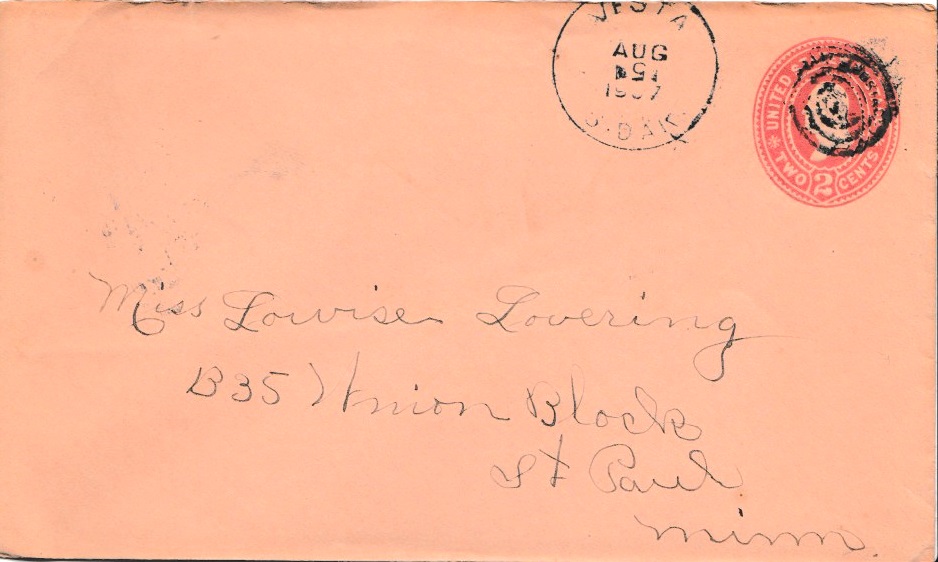 VESTA
AUG
1907
S. DAK.
UNITED STATES
TWO 2 CENTS
Miss Louise Lovering
B35 Union Block
St Paul
Minn.